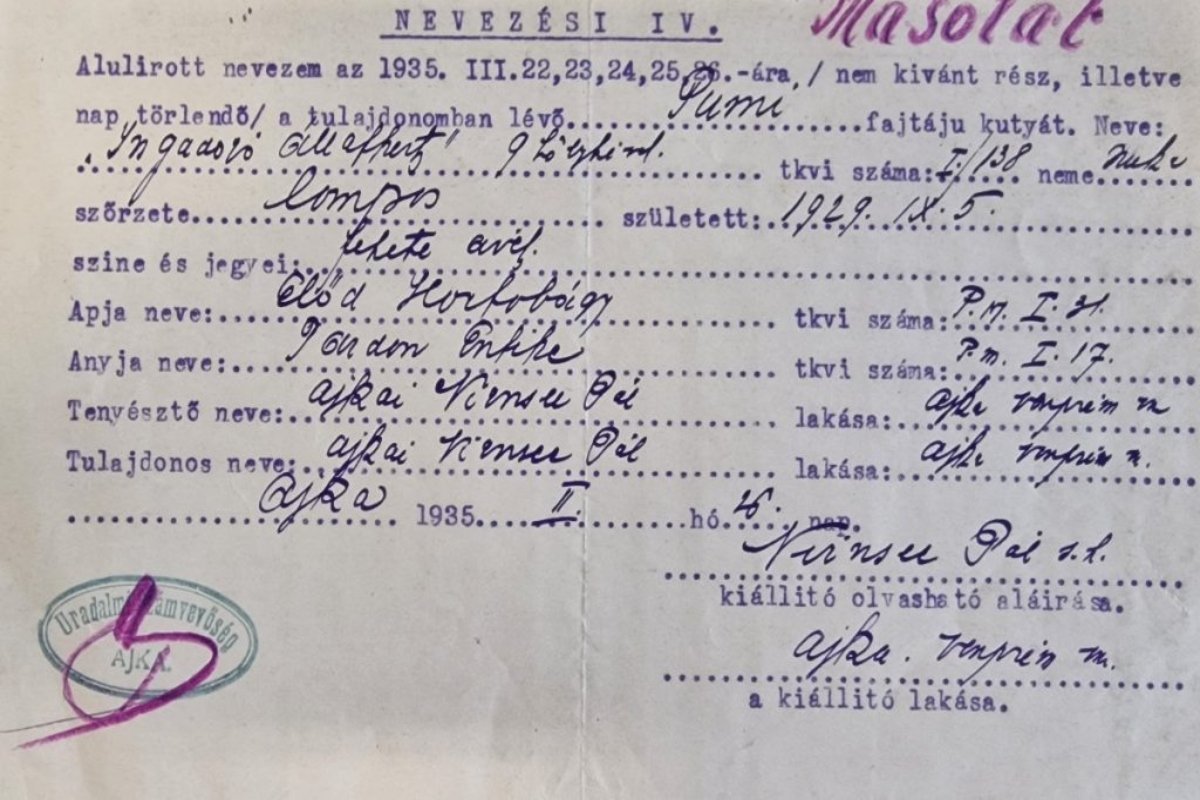 NEVEZÉSI IV. Másolat
Alulirott nevezem az 1935. III.22,23,24,25,26.-ára, / nem kivánt rész, illetve
nap törlendő/ a tulajdonomban lévő....Pumi....fajtáju kutyát. Neve:
"Ingadozó tkvi száma: I./138 neme
szőrzete....lompos.... született: 1929. IX. 5.
szine és jegyei: fekete
Apja neve: Előd Hortobágy tkvi száma: P.m. I. 31.
Anyja neve: Pardon tkvi száma: P.m. I. 17.
Tenyésztő neve: ajkai Nirnsee Pál lakása: Ajka veszprém m
Tulajdonos neve: ajkai Nirnsee Pál lakása: Ajka veszprém m.
Ajka 1935. II. hó nap.
Nirnsee Pál s.k.
kiállitó olvasható aláirása.
Uradalmi Számvevőség
AJKA.
Ajka. veszprém m.
a kiállitó lakása.